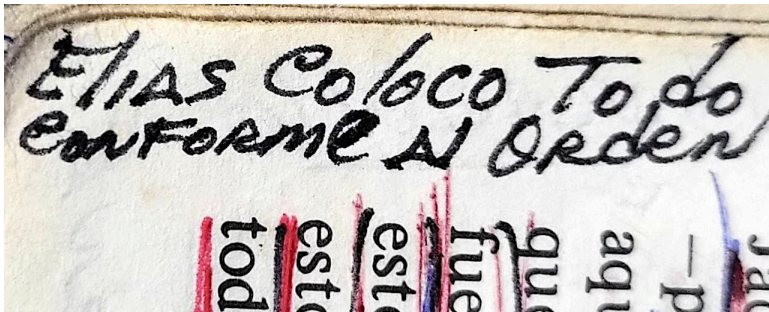 Elias Coloco Todo
conforme al Orden
tod
esto
esto
fue
que
aqu
—p
Jac